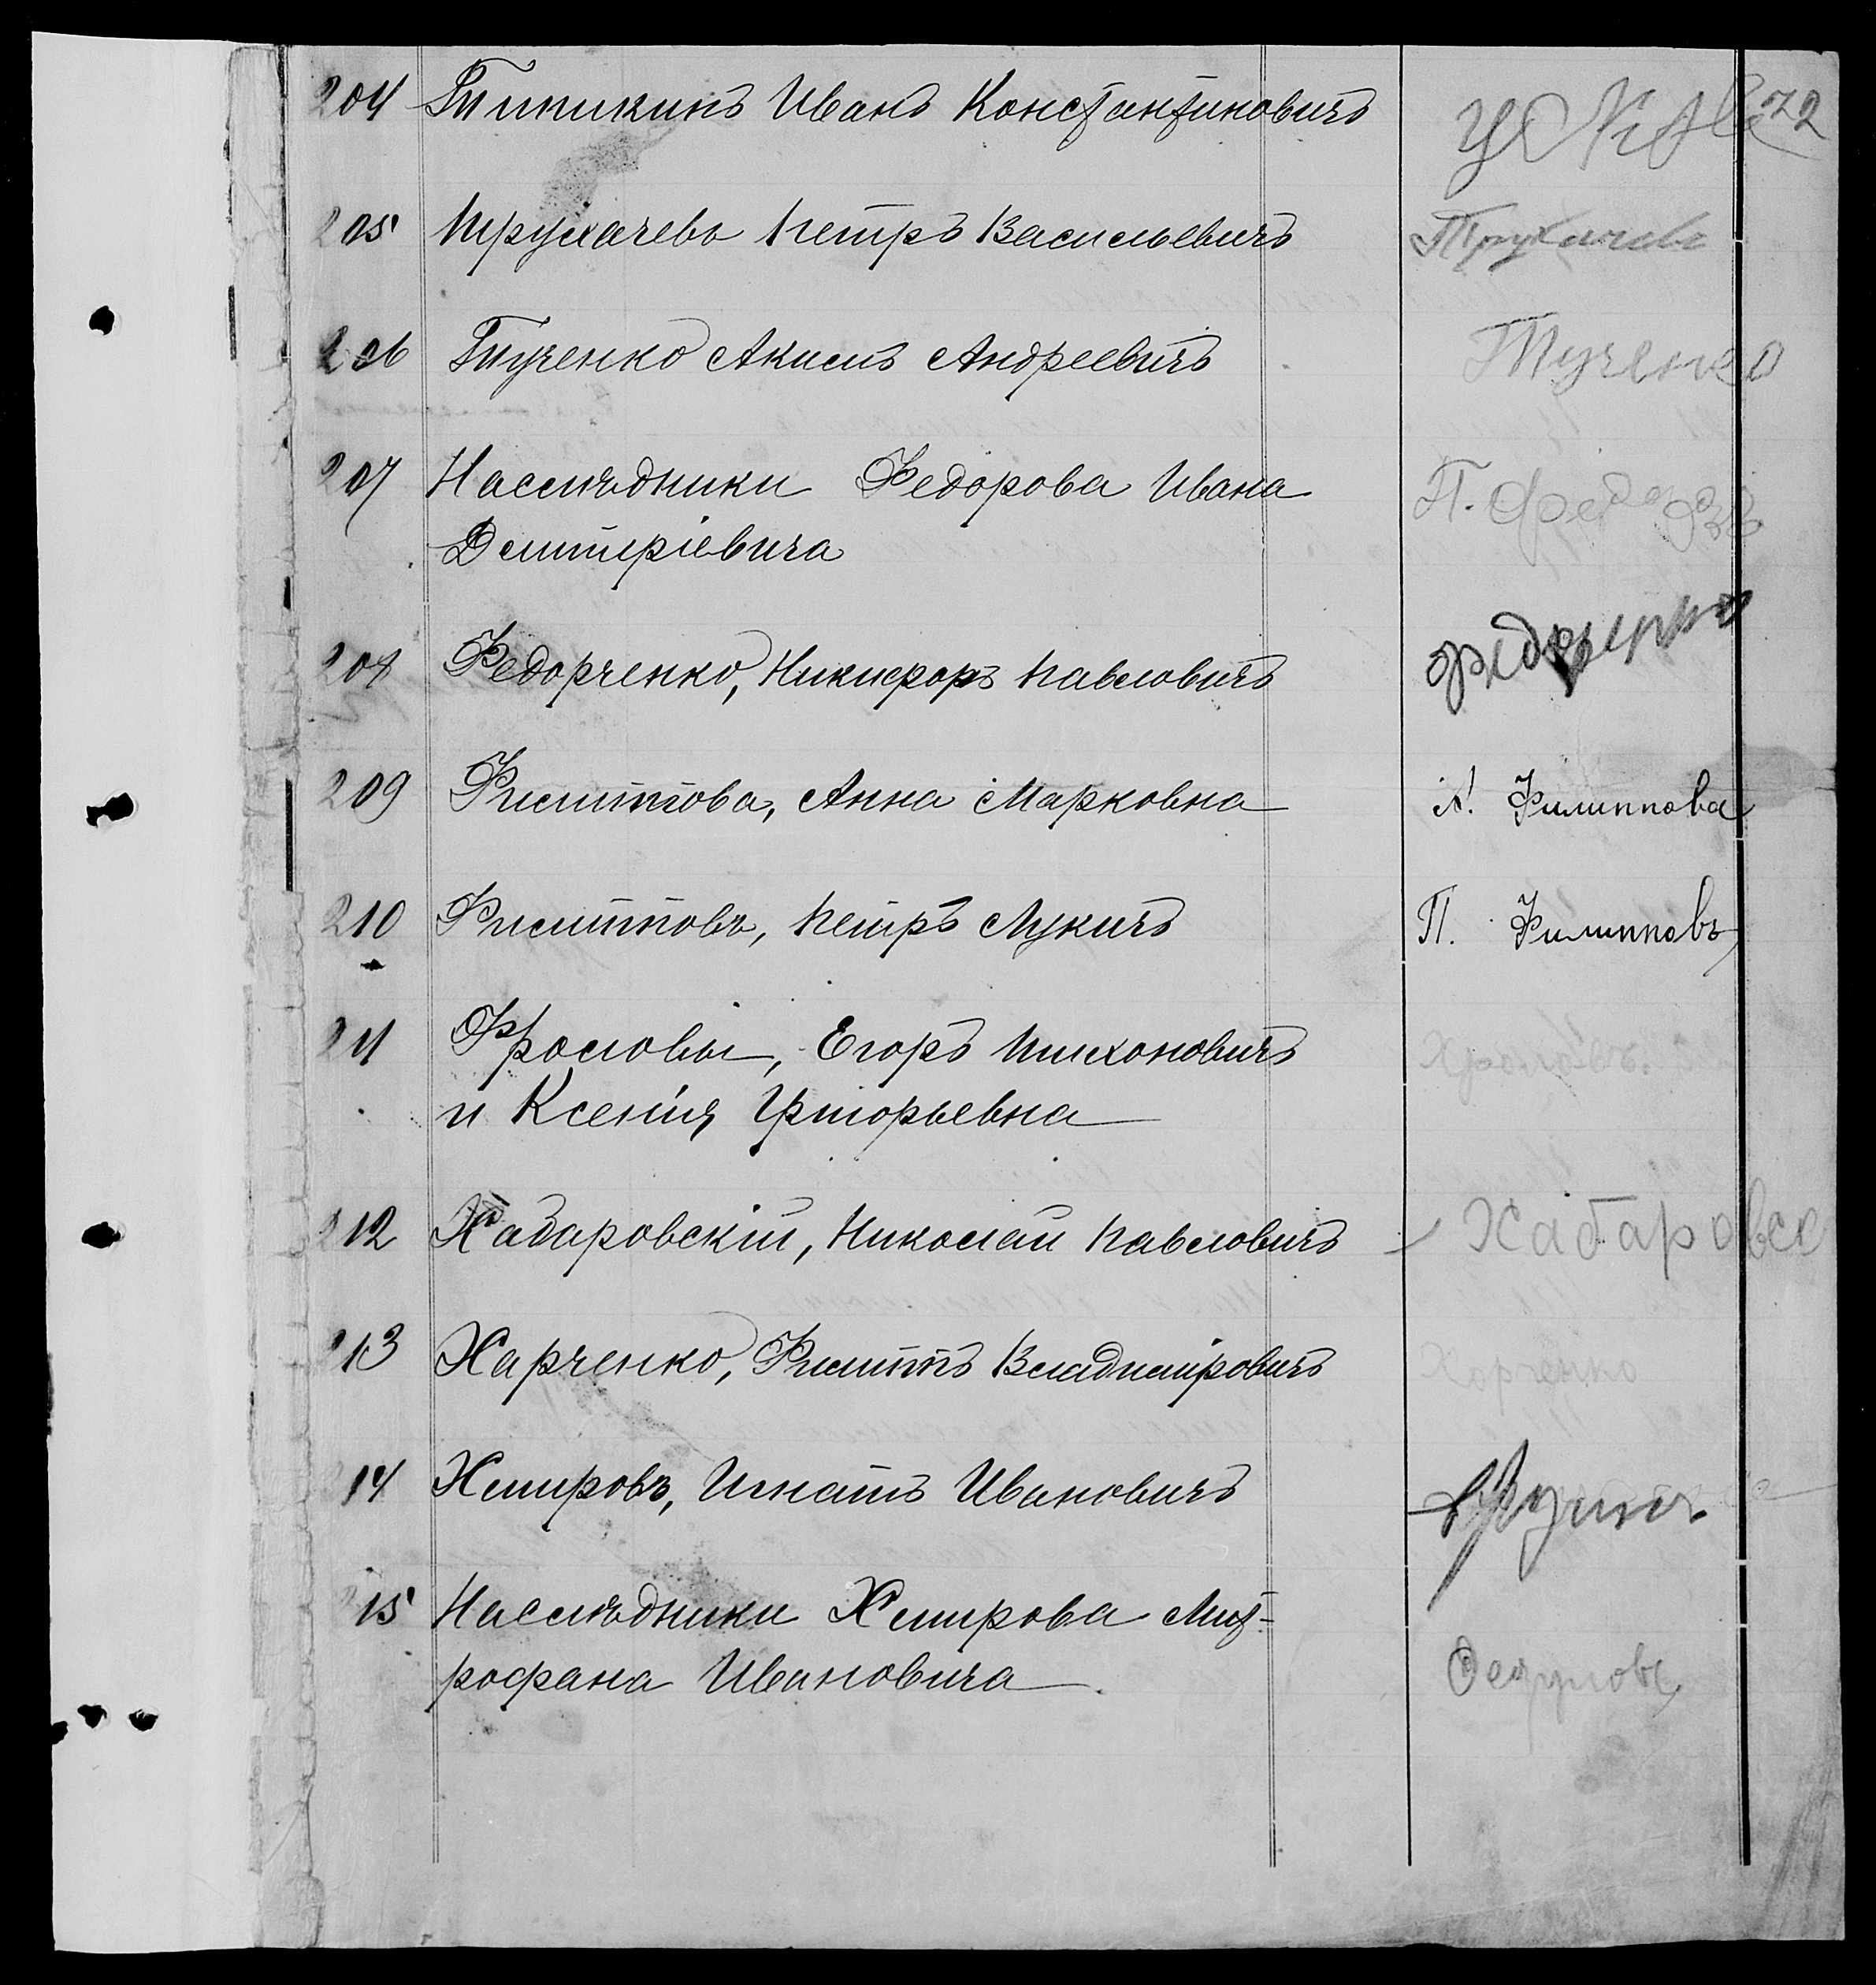 204 Типикинъ Иванъ Константиновичъ
205 Трухачевъ Петръ Васильевичъ Трухачевъ
206 Тученко Акимъ Андреевичъ Тученко
207 Наслѣдники Федорова Ивана П. Федоровъ
Дмитріевича
208 Федорченко, Никифоръ Павловичъ
209 Филиппова, Анна Марковна А. Филиппова
210 Филипповъ, Петръ Лукичъ П. Филипповъ
211 Фроловы, Егоръ Тихоновичъ Хроловъ
и Ксенія Григорьевна
212 Хабаровскій, Николай Павловичъ Хабаровск
213 Харченко, Филиппъ Владиміровичъ Хорченко
214 Хмыровъ, Игнатъ Ивановичъ
215 Наслѣдники Хмырова Мит-
рофана Ивановича